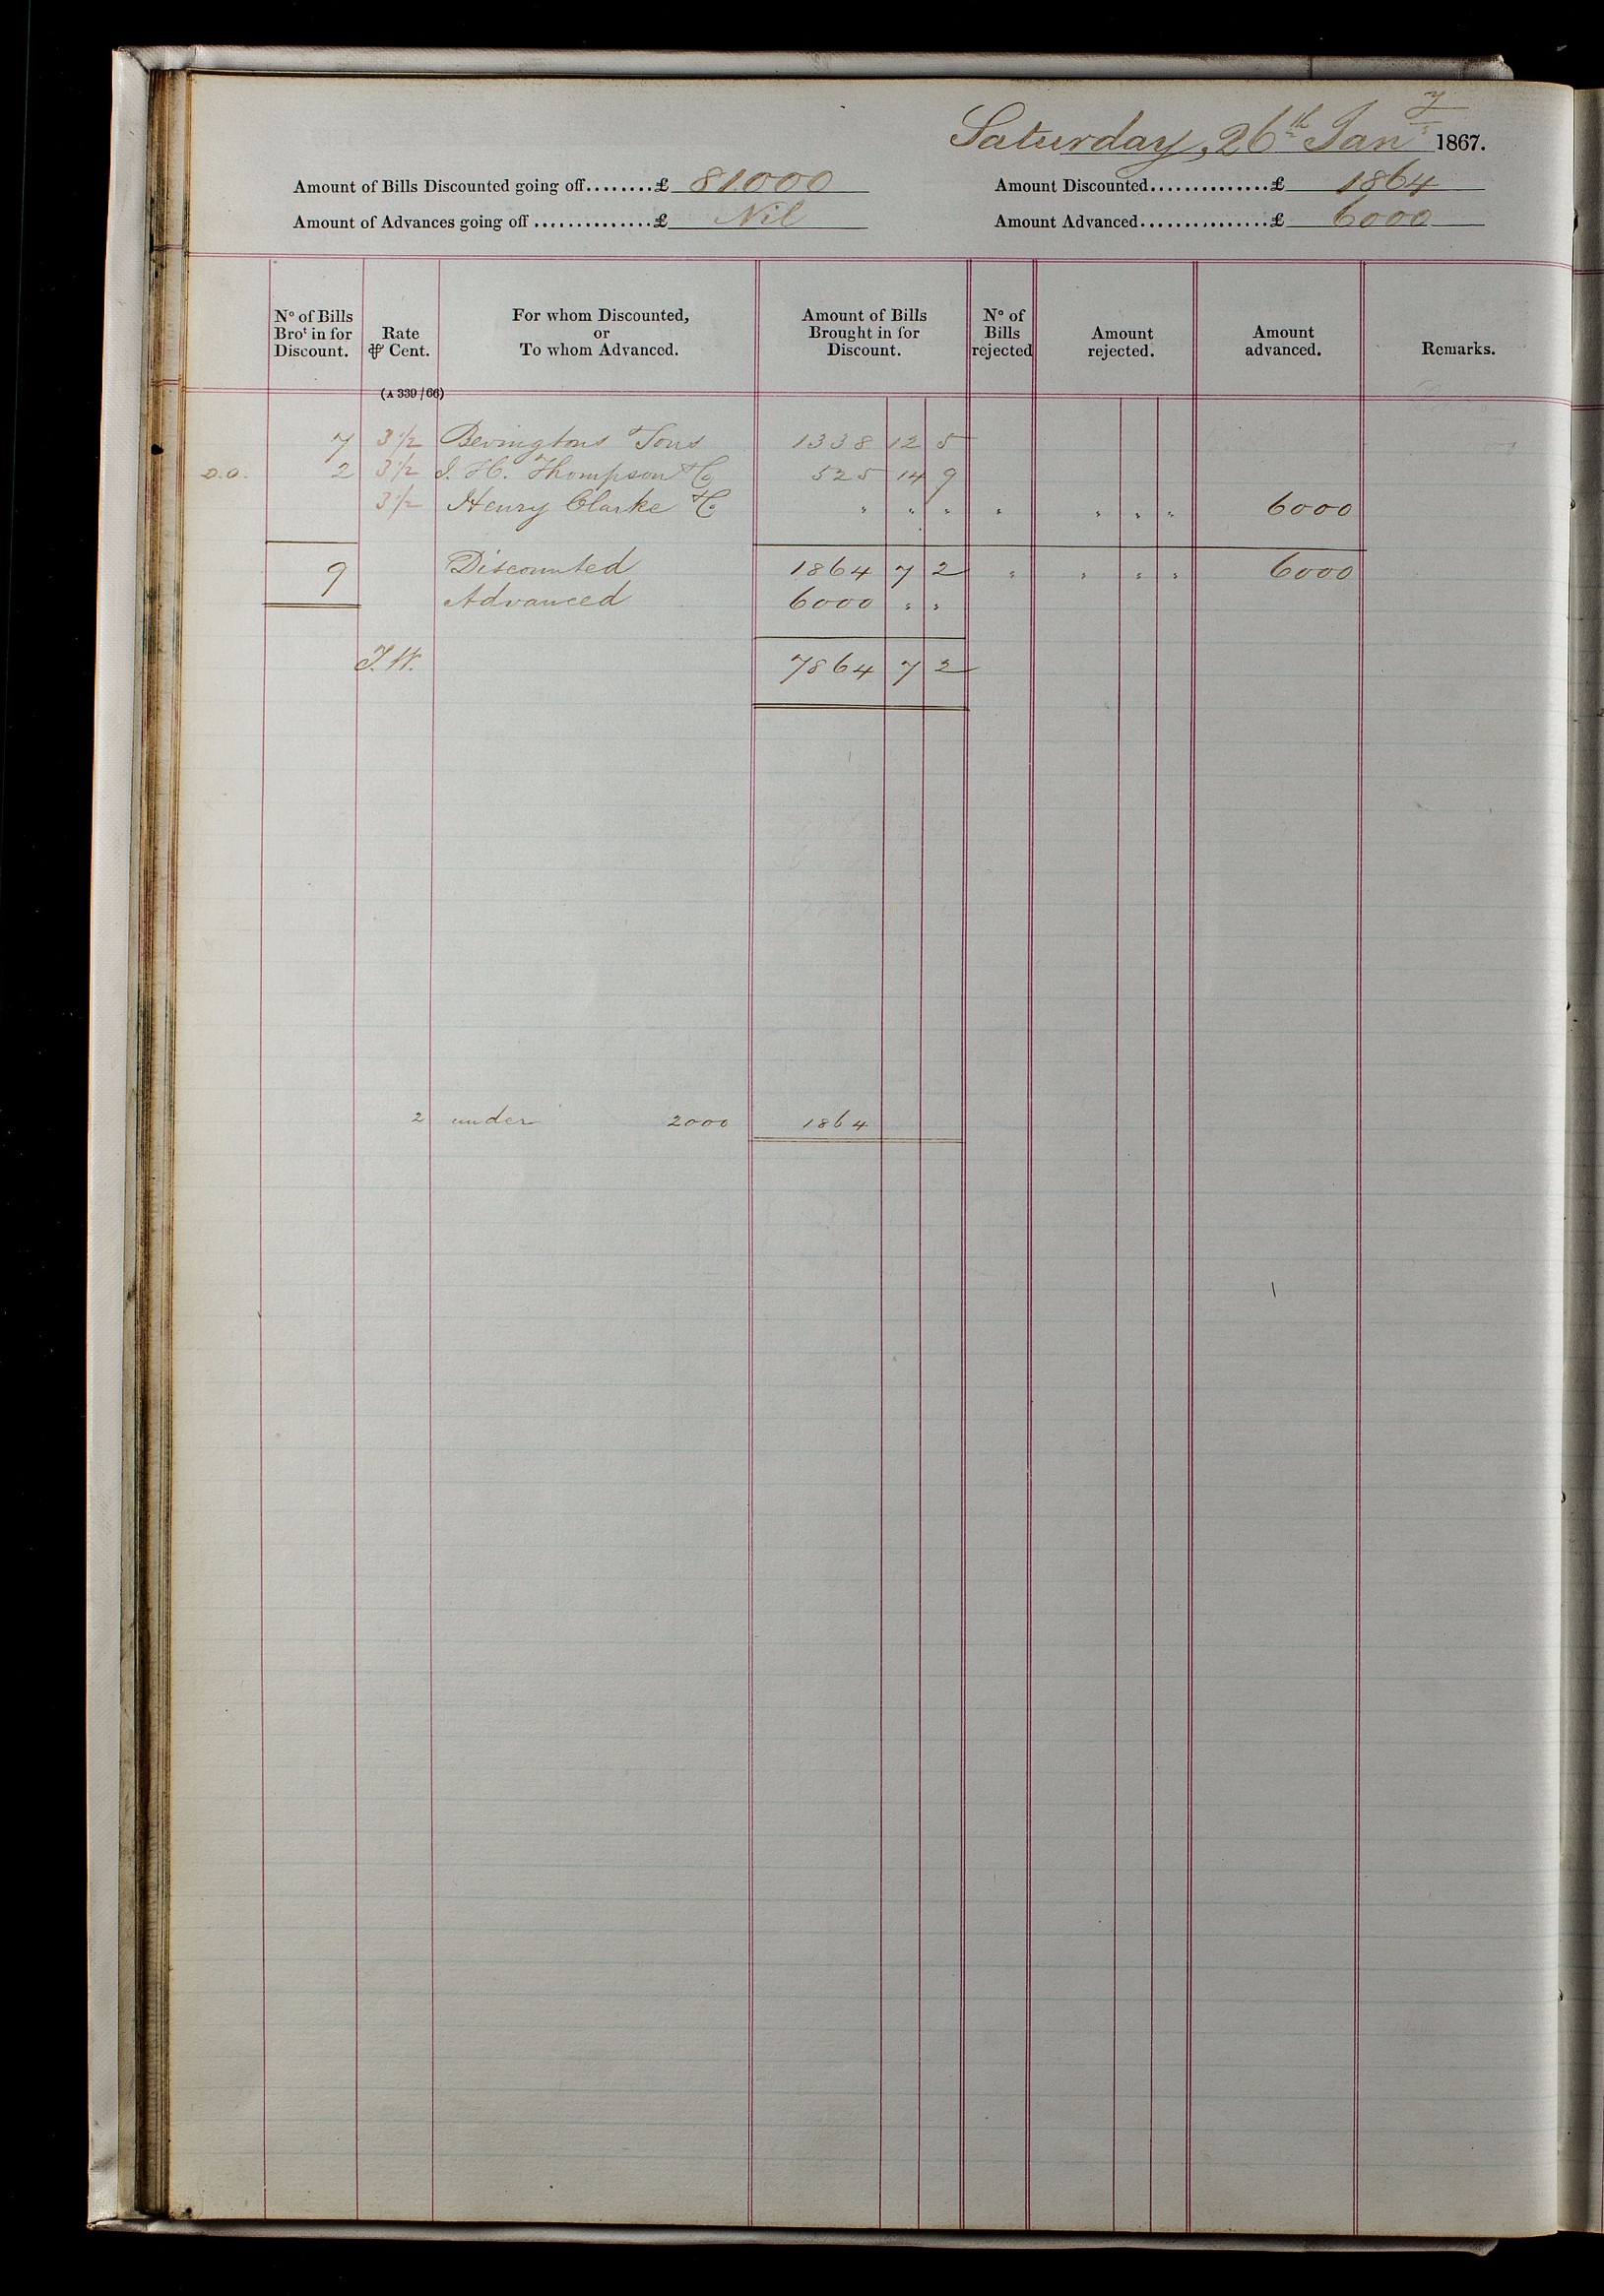 Saturday, 26th Jany 1867.
Amount of Bills Discounted going off........£ 81000 Amount Discounted...............£ 1864
Amount of Advances going off ...............£ Nil Amount Advanced................£ 6000
No of Bills Brot in for Discount. Rate ⅌ Cent. For whom Discounted, or To whom Advanced. Amount of Bills Brought in for Discount. No of Bills rejected Amount rejected. Amount advanced. Remarks.
(A 339/66)
7 3 1/2 Bevingtons & Sons 1338 12 5
D.O. 2 3 1/2 J. H. Thompson & Co 525 14 9
3 1/2 Henry Clarke & Co " " " " " " " 6000
9 Discounted 1864 7 2 " " " " 6000
Advanced 6000 " "
J.W. 7864 7 2
2 under 2000 1864